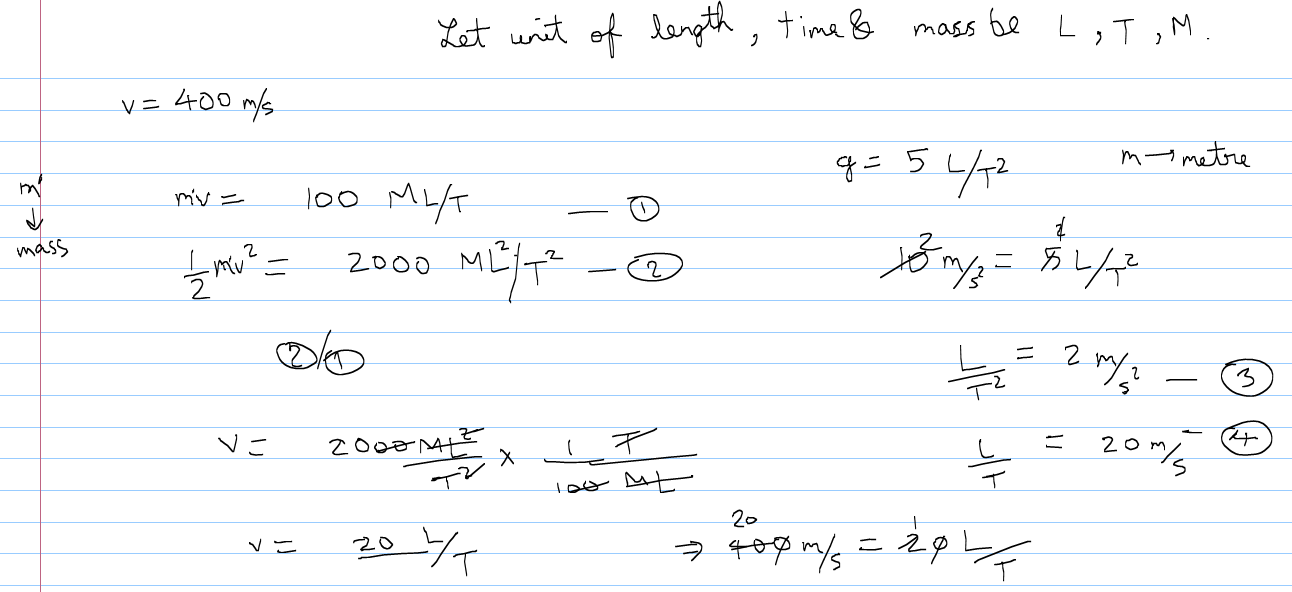 Let unit of length, time & mass be L, T, M.
v = 400 m/s
g = 5 L/T² m → metre
m' ↓ mass
m'v = 100 ML/T — ①
½ m'v² = 2000 ML²/T² — ②
10 2 m/s² = 5 1 L/T²
②/①
L/T² = 2 m/s² — ③
v = 2000 ML²/T² × 1 T/100 ML
L/T = 20 m/s — ④
v = 20 L/T
⇒ 400 20 m/s = 20 1 L/T